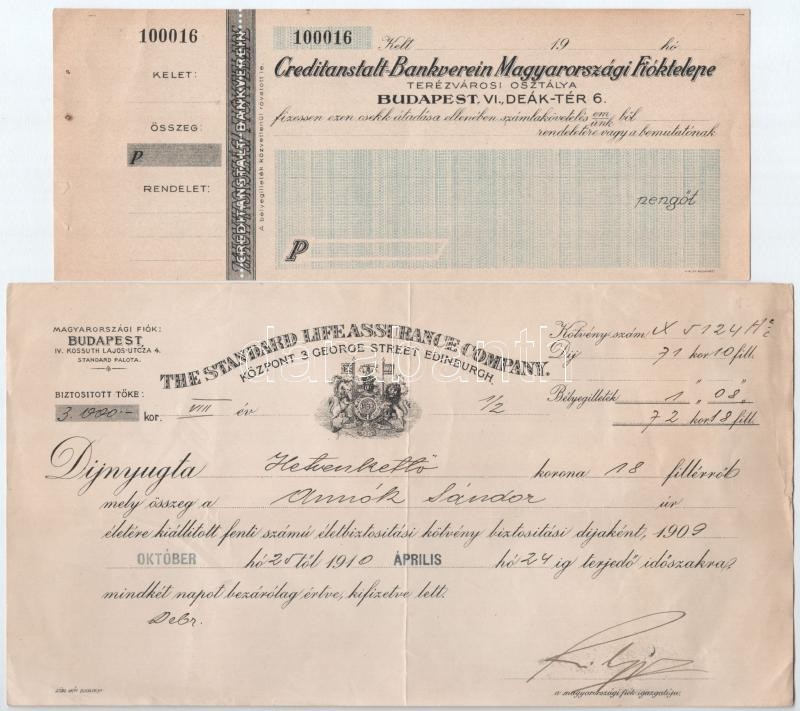 100016
KELET:
ÖSSZEG:
P
RENDELET:
CREDITANSTALT-BANKVEREIN
A bélyegilleték közvetlenül rovatott le.
100016 Kelt 19 hó
Creditanstalt-Bankverein Magyarországi Fióktelepe
TERÉZVÁROSI OSZTÁLYA
BUDAPEST, VI., DEÁK-TÉR 6.
fizessen ezen csekk átadása ellenében számlakövetelés em/ünk ből
rendeletére vagy a bemutatónak
pengőt
P
MAGYARORSZÁGI FIÓK:
BUDAPEST
IV. KOSSUTH LAJOS-UTCZA 4.
STANDARD PALOTA.
THE STANDARD LIFE ASSURANCE COMPANY.
KÖZPONT 3 GEORGE STREET EDINBURGH.
Kötvény szám X 5124
Díj 71 kor 10 fill.
Bélyegilleték 1 " 08 "
72 kor 18 fill.
BIZTOSITOTT TŐKE:
3.000.- kor. VIII év 1/2
Dijnyugta Hetvenkettő korona 18 fillérről
mely összeg a Annók Sándor úr
életére kiállított fenti számú életbiztosítási kötvény biztosítási díjaként, 1909
OKTÓBER hó 25től 1910 ÁPRILIS hó 24 ig terjedő időszakra,
mindkét napot bezárólag értve, kifizetve lett.
Debr.
a magyarországi fiók igazgatója.